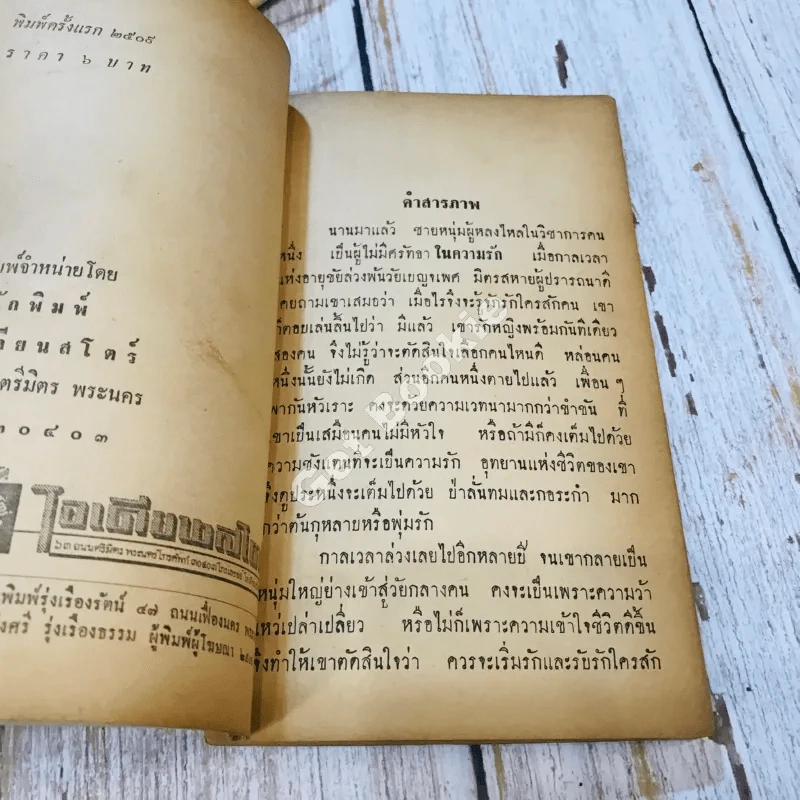 พิมพ์ครั้งแรก ๒๕๐๙
ราคา ๖ บาท
พิมพ์จำหน่ายโดย
พิมพ์
สโตร์
ตรีมิตร พระนคร
๓๐๔๐๓
พิมพ์รุ่งเรืองรัตน์ ๔๗ ถนนเฟื่องนคร
ศรี รุ่งเรืองธรรม ผู้พิมพ์ผู้โฆษณา
คำสารภาพ
นานมาแล้ว ชายหนุ่มผู้หลงไหลในวิชาการคน
หนึ่ง เป็นผู้ไม่มีศรัทธา ในความรัก เมื่อกาลเวลา
แห่งอายุขัยล่วงพ้นวัยเบญจเพศ มิตรสหายผู้ปรารถนาดี
เคยถามเขาเสมอว่า เมื่อไรจึงจะรู้จักรักใครสักคน เขา
ก็ตอบเล่นลิ้นไปว่า มีแล้ว เขารักหญิงพร้อมกันทีเดียว
สองคน จึงไม่รู้ว่าจะตัดสินใจเลือกคนไหนดี หล่อนคน
หนึ่งนั้นยังไม่เกิด ส่วนอีกคนหนึ่งตายไปแล้ว เพื่อน ๆ
พากันหัวเราะ คงจะด้วยความเวทนามากกว่าขำขัน ที่
เขาเป็นเสมือนคนไม่มีหัวใจ หรือถ้ามีก็คงเต็มไปด้วย
ความชังแทนที่จะเป็นความรัก อุทยานแห่งชีวิตของเขา
จึงดูประหนึ่งจะเต็มไปด้วย ป่าลั่นทมและกอระกำ มาก
กว่าต้นกุหลายหรือพุ่มรัก
กาลเวลาล่วงเลยไปอีกหลายปี จนเขากลายเป็น
หนุ่มใหญ่ย่างเข้าสู่วัยกลางคน คงจะเป็นเพราะความว้า
เหว่เปล่าเปลี่ยว หรือไม่ก็เพราะความเข้าใจชีวิตดีขึ้น
จึงทำให้เขาตัดสินใจว่า ควรจะเริ่มรักและรับรักใครสัก
Got Bookie